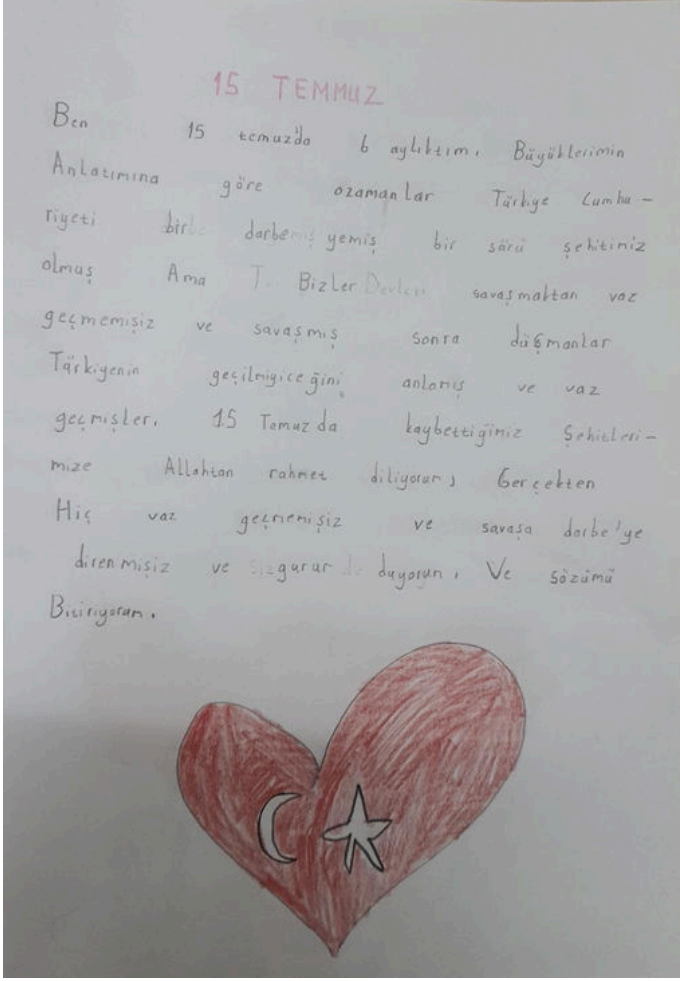 15 TEMMUZ
Ben 15 temuz'da 6 aylıktım. Büyüklerimin
Anlatımına göre ozamanlar Türkiye Cumhu-
riyeti bir darbe yemiş bir sürü şehitimiz
olmuş Ama Bizler savaşmaktan vaz
geçmemişiz ve savaşmış sonra düşmanlar
Türkiyenin geçilmiyiceğini anlamış ve vaz
geçmişler. 15 Temuzda kaybettiğimiz Şehitleri-
mize Allahtan rahmet diliyorum, Gerçekten
Hiç vaz geçmemişiz ve savaşa darbe'ye
direnmişiz ve gurur duyorum. Ve sözümü
Bitiriyorum.